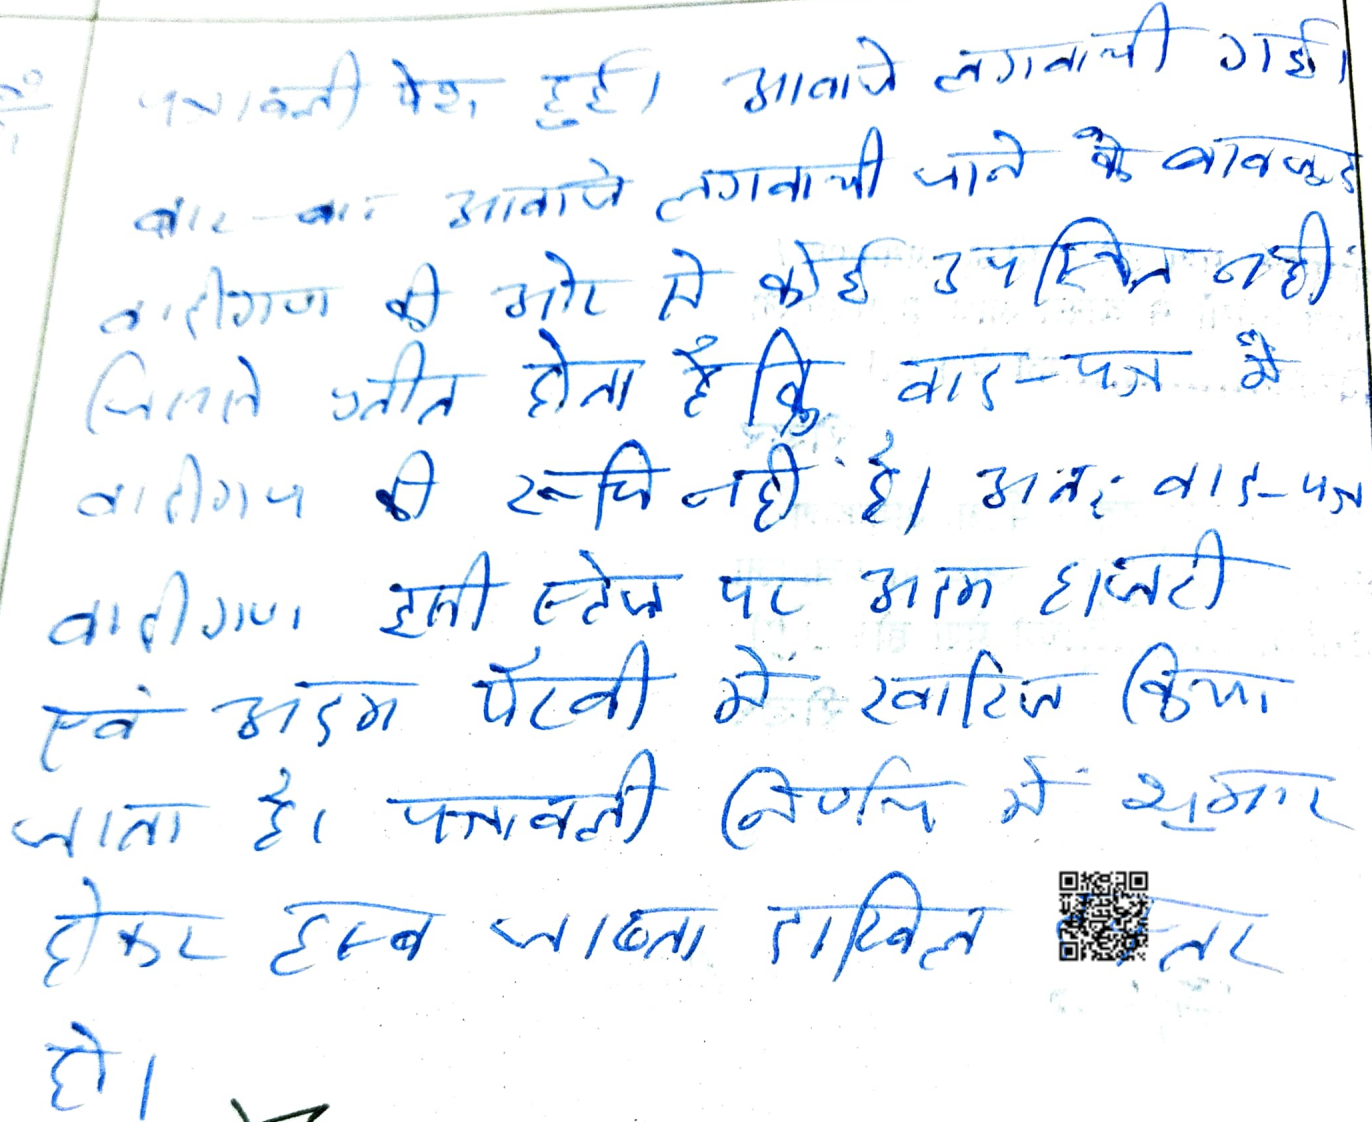 पत्रावली पेश हुई। आवाजे लगवायी गई।
बार-बार आवाजे लगवायी जाने के बावजूद
वादीगण की ओर से कोई उपस्थित नही
जिससे प्रतीत होता है कि वाद-पत्र मे
वादीगण की रूचि नही है। अतः वाद-पत्र
वादीगण इसी स्टेज पर अदम हाजरी
एवं अदम पैरवी में खारिज किया
जाता है। पत्रावली निर्णय में शुमार
होकर हस्ब जाब्ता दाखिल
हो।